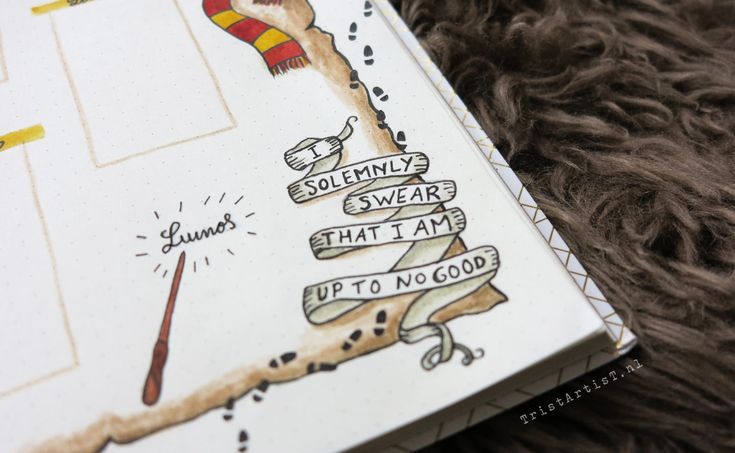 I
SOLEMNLY
SWEAR
THAT I AM
UP TO NO GOOD
Lumos
TristArtisT.nl